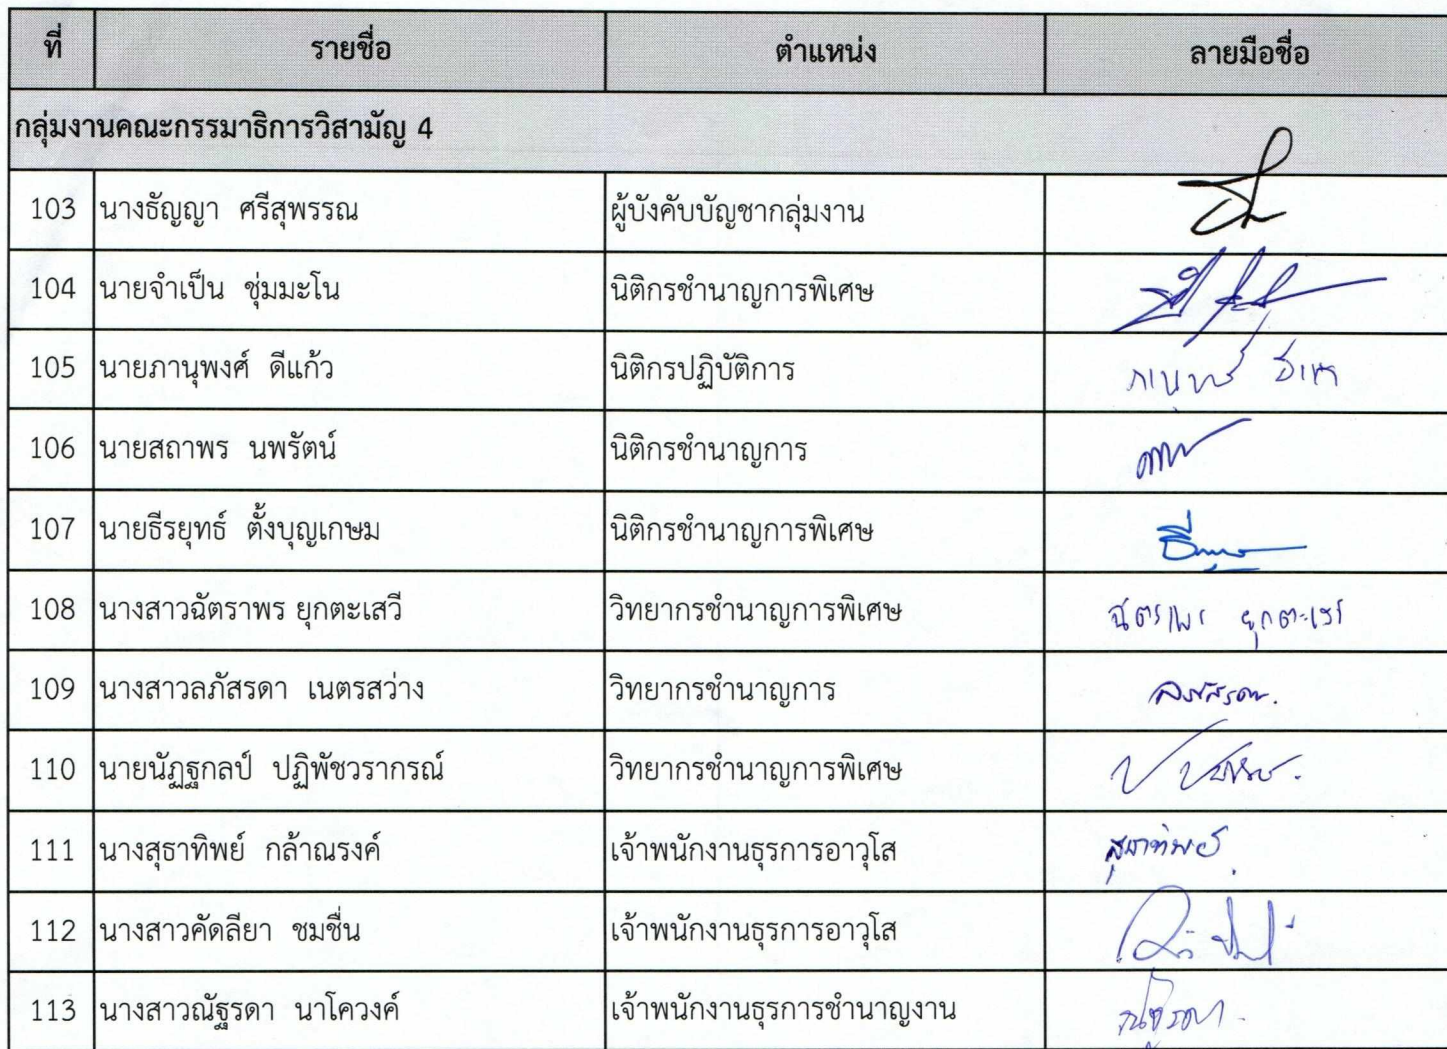 ที่ รายชื่อ ตำแหน่ง ลายมือชื่อ
กลุ่มงานคณะกรรมาธิการวิสามัญ 4
103 นางธัญญา ศรีสุพรรณ ผู้บังคับบัญชากลุ่มงาน
104 นายจำเป็น ชุ่มมะโน นิติกรชำนาญการพิเศษ
105 นายภานุพงศ์ ดีแก้ว นิติกรปฏิบัติการ
106 นายสถาพร นพรัตน์ นิติกรชำนาญการ
107 นายธีรยุทธ์ ตั้งบุญเกษม นิติกรชำนาญการพิเศษ
108 นางสาวฉัตราพร ยุกตะเสวี วิทยากรชำนาญการพิเศษ ฉัตราพร ยุกตะเสวี
109 นางสาวลภัสรดา เนตรสว่าง วิทยากรชำนาญการ ลภัสรดา
110 นายนัฏฐกลป์ ปฏิพัชวรากรณ์ วิทยากรชำนาญการพิเศษ
111 นางสุธาทิพย์ กล้าณรงค์ เจ้าพนักงานธุรการอาวุโส สุธาทิพย์
112 นางสาวคัดลียา ชมชื่น เจ้าพนักงานธุรการอาวุโส
113 นางสาวณัฐรดา นาโควงค์ เจ้าพนักงานธุรการชำนาญงาน ณัฐรดา